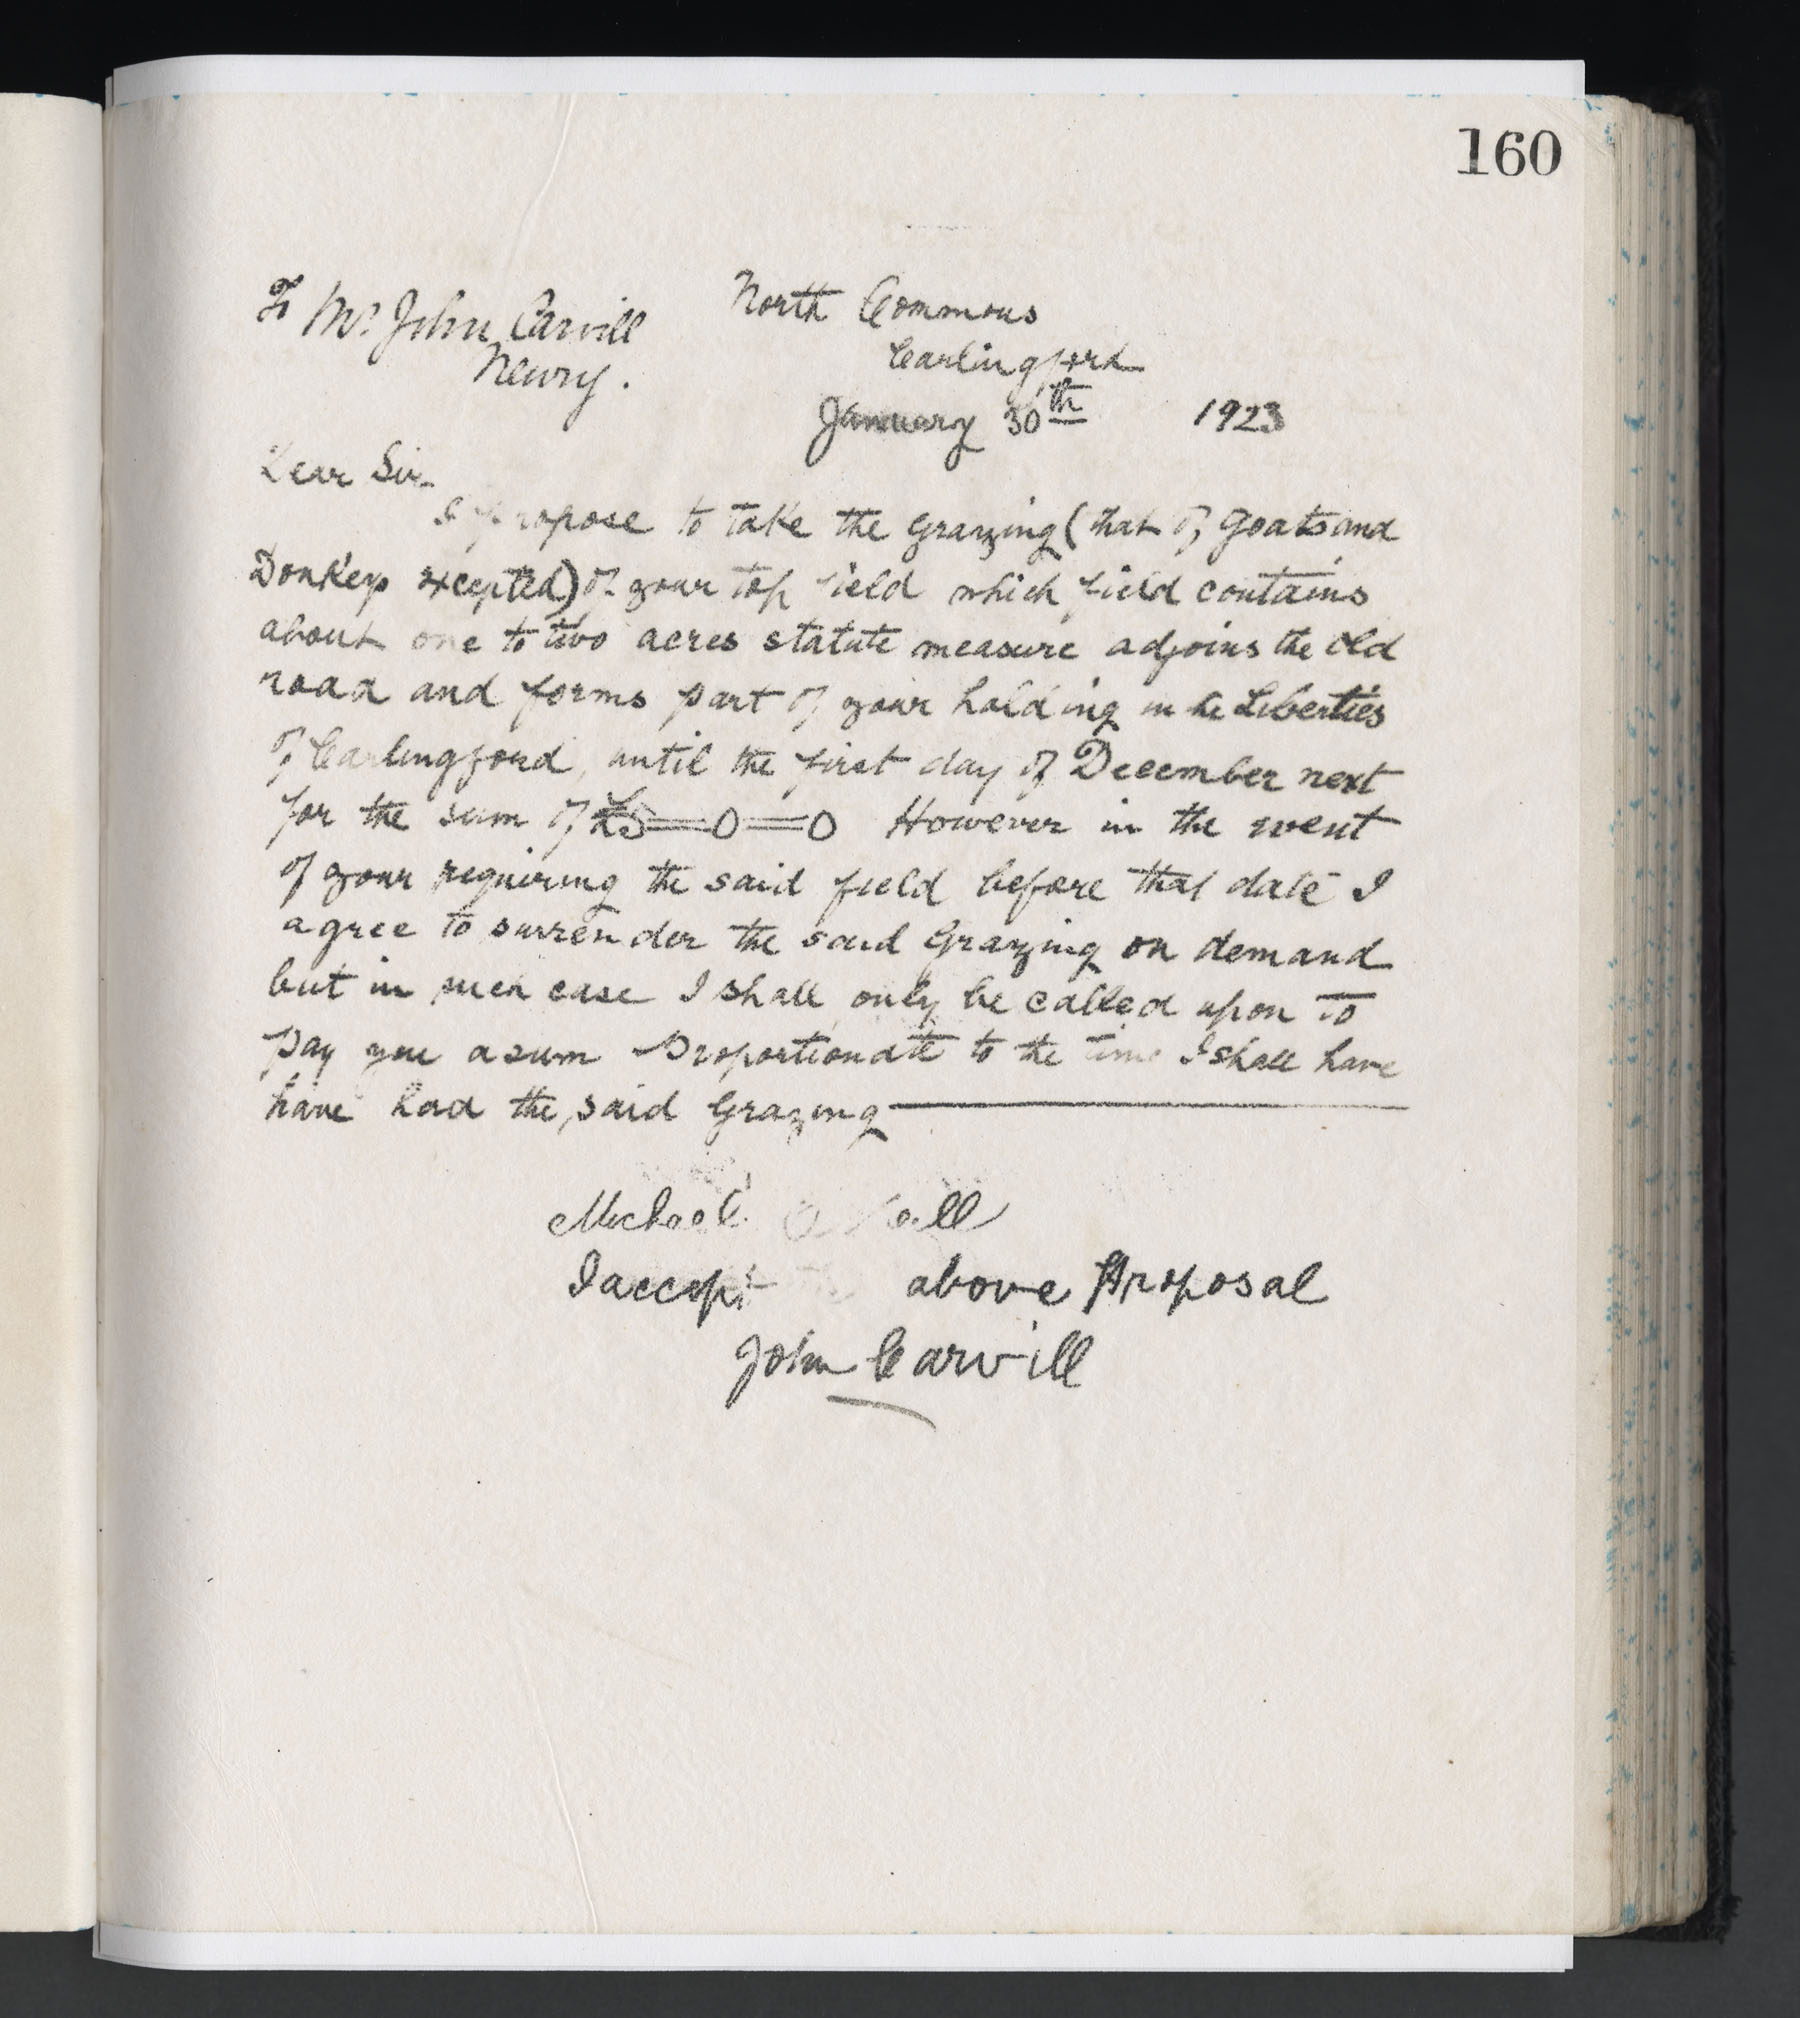 160
To Mr. John Carvill
Newry.
North Commons
Carlingford
January 30th 1923
Dear Sir
I propose to take the grazing (that of Goats and
Donkeys excepted) of your top field which field contains
about one to two acres statute measure adjoins the old
road and forms part of your holding in he Liberties
of Carlingford, until the first day of December next
for the sum of £5=0=0 However in the event
of your requiring the said field before that date I
agree to surrender the said Grazing on demand
but in such case I shall only be called upon to
pay you a sum Proportionate to the time I shall have
have had the said Grazing
Michael
I accept above Proposal
John Carvill